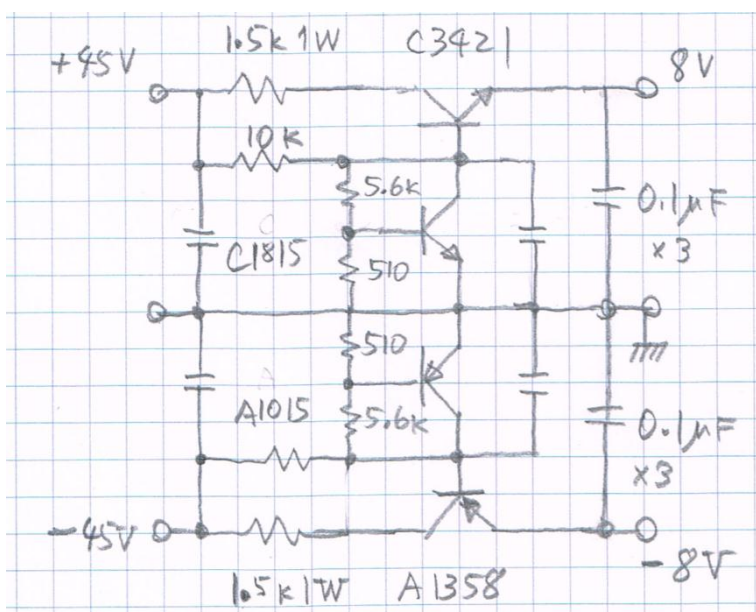 1.5k 1W
C3421
+45V
8V
10k
5.6k
0.1μF
×3
C1815
510
510
A1015
5.6k
0.1μF
×3
-45V
1.5k 1W
A1358
-8V